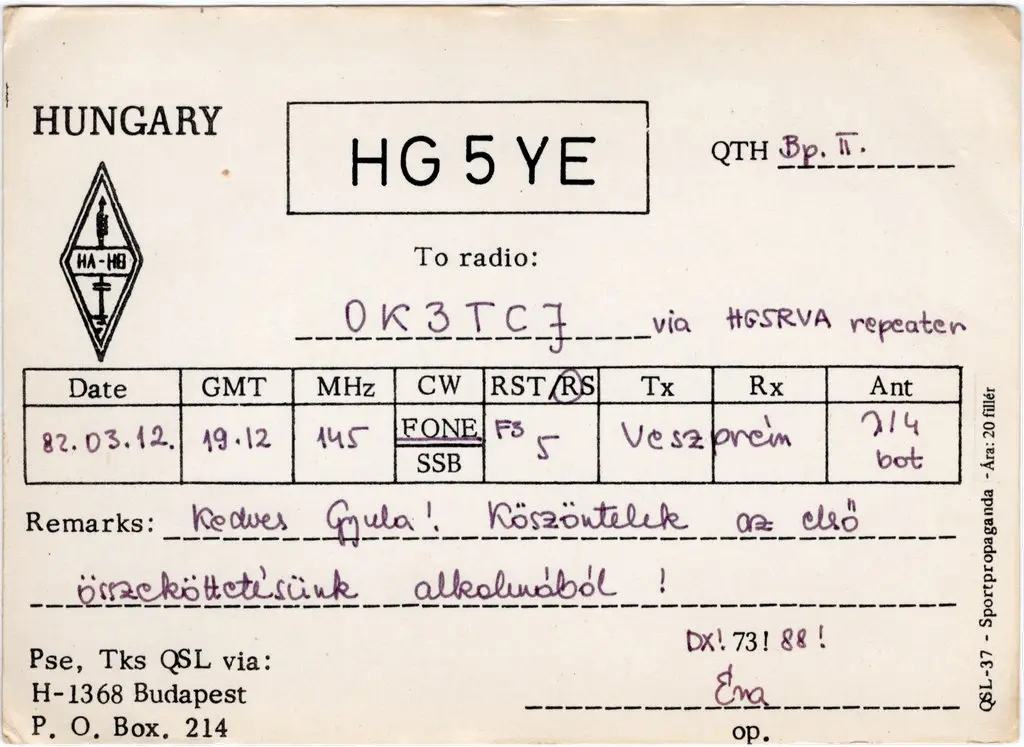 HUNGARY
HG5YE
QTH Bp. II.
HA-HG
To radio:
OK3TCJ via HG5RVA repeater
Date GMT MHz CW RST/RS Tx Rx Ant
82.03.12. 19.12 145 FONE F3 5 Veszprém λ/4
SSB bot
Remarks: Kedves Gyula! Köszöntelek az első
összeköttetésünk alkalmából!
DX! 73! 88!
Pse, Tks QSL via:
H-1368 Budapest
P. O. Box. 214
Éva
op.
QSL-37 - Sportpropaganda - Ára: 20 fillér